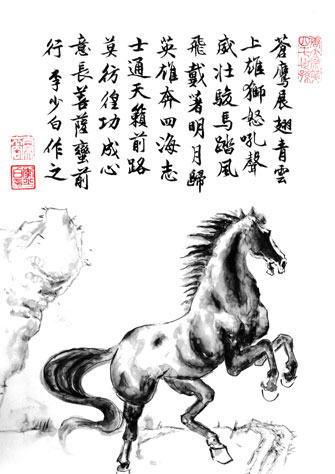 蒼鷹展翅青雲
上雄獅怒吼聲
威壯駿馬踏風
飛戴著明月歸
英雄奔四海志
士通天籟前路
莫彷徨功成心
意長菩薩蠻前
行 李少白作之